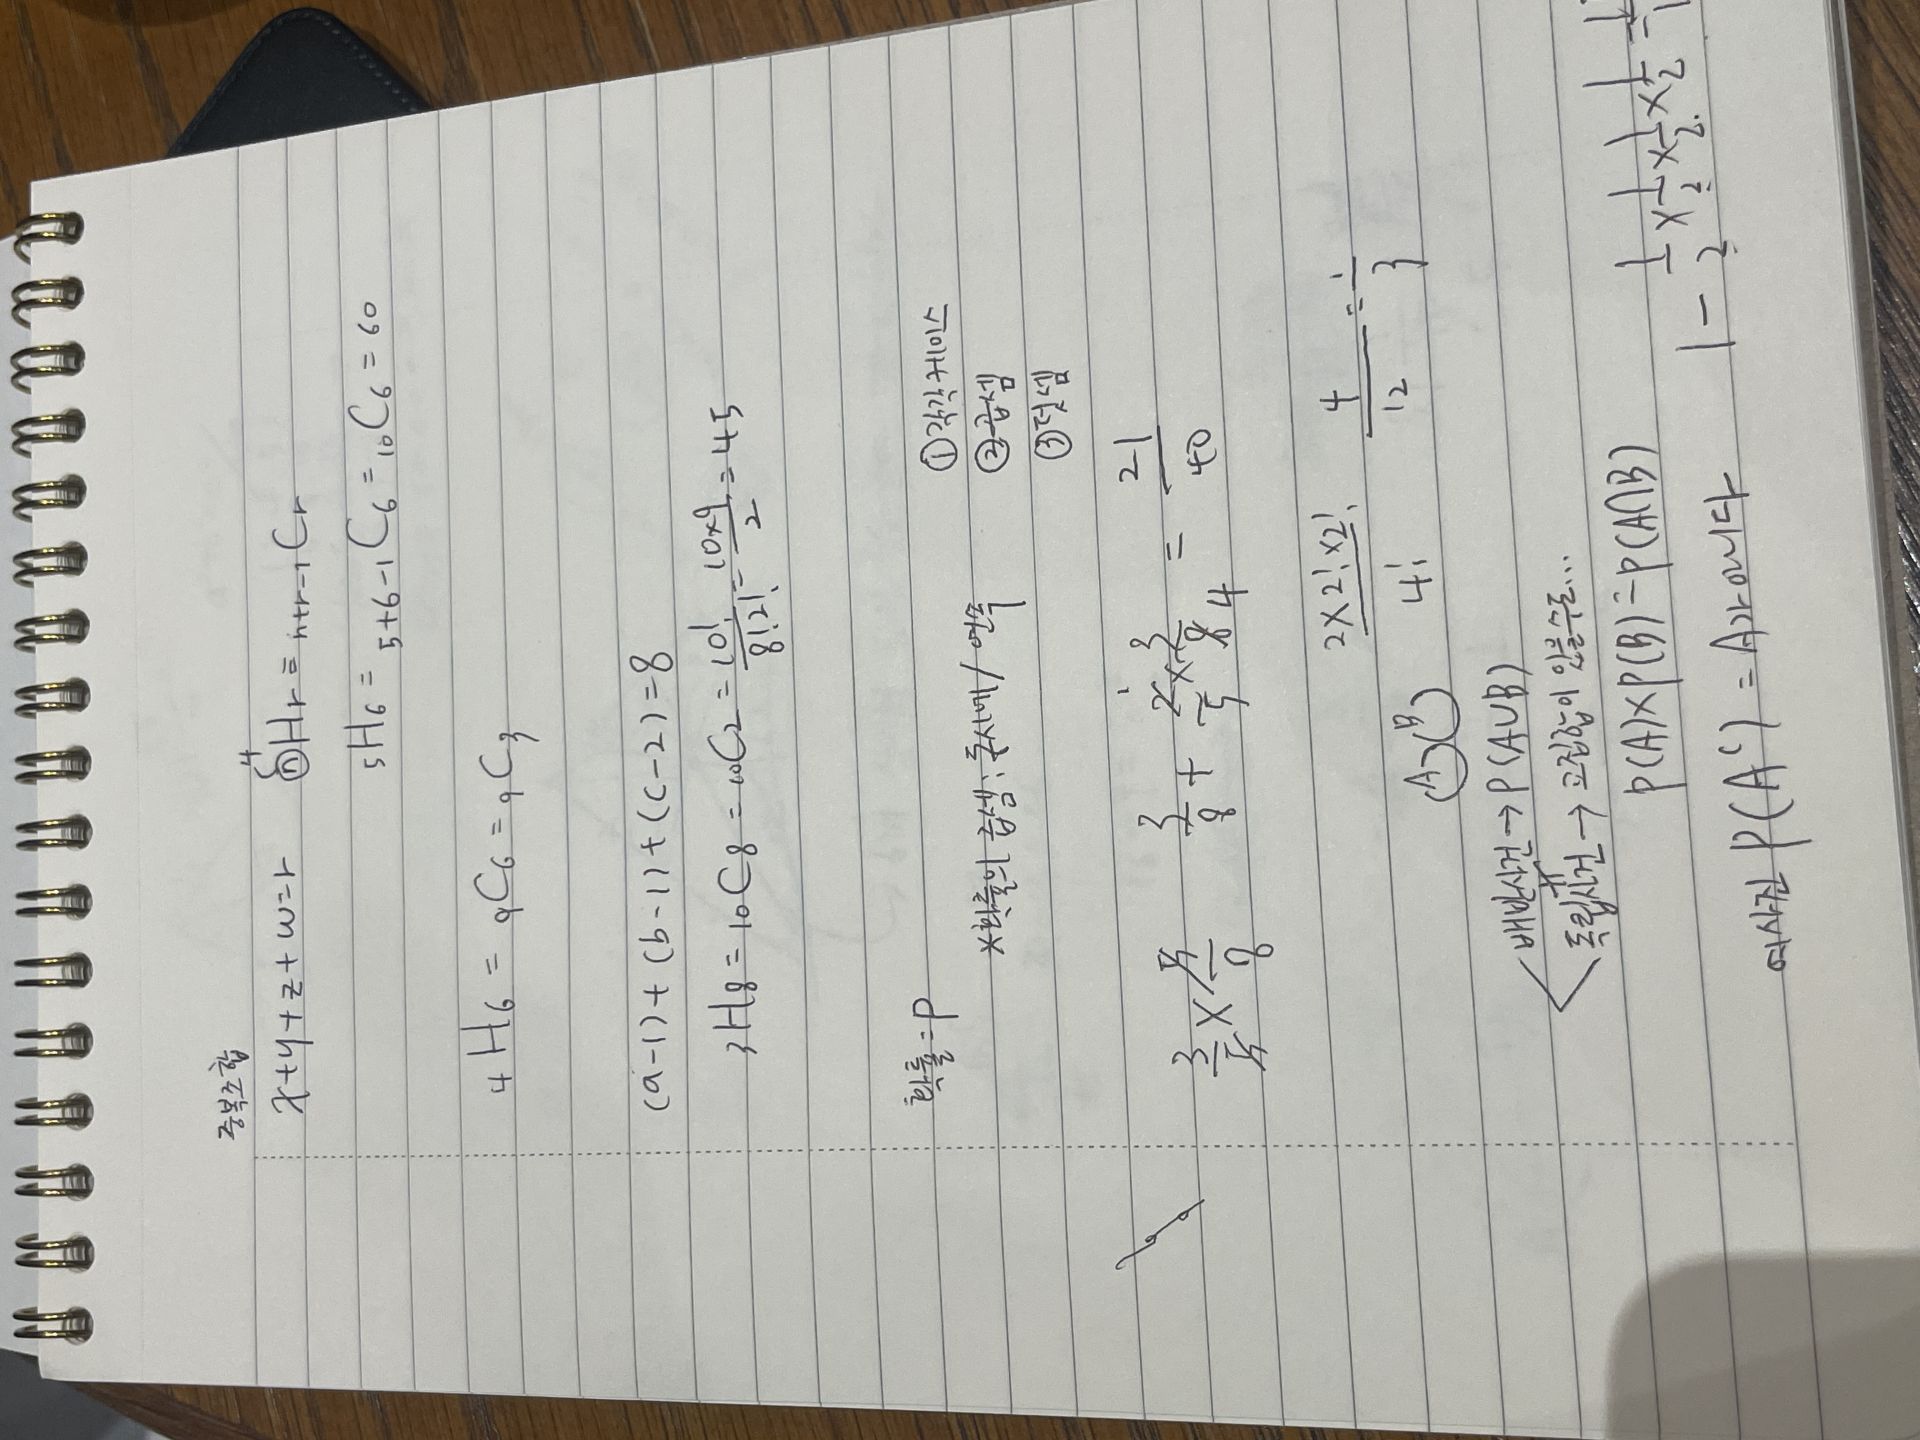 중복조합
x+y+z+w=r ⓝHr = n+r-1Cr
4
5H6 = 5+6-1C6 = 10C6 = 60
4H6 = 9C6 = 9C3
(a-1)+(b-1)+(c-2)=8
3H8 = 10C8 = 10C2 = 10!/8!2! = 10×9/2 = 45
확률=P ①각각케이스
*확률의 곱셈: 동시에/연속 ②곱셈
③덧셈
3/5 × 5/8 3/8 + 2/5 × 3/8 = 21/40
1 4
2×2!×2!/4! 4/12 = 1/3
A B
배반사건→P(A∪B)
독립사건→교집합이 있을수도...
P(A)×P(B)=P(A∩B)
여사건 P(A^c) = A가 아니다 1 - 1/2 × 1/2 × 1/2 × 1/2